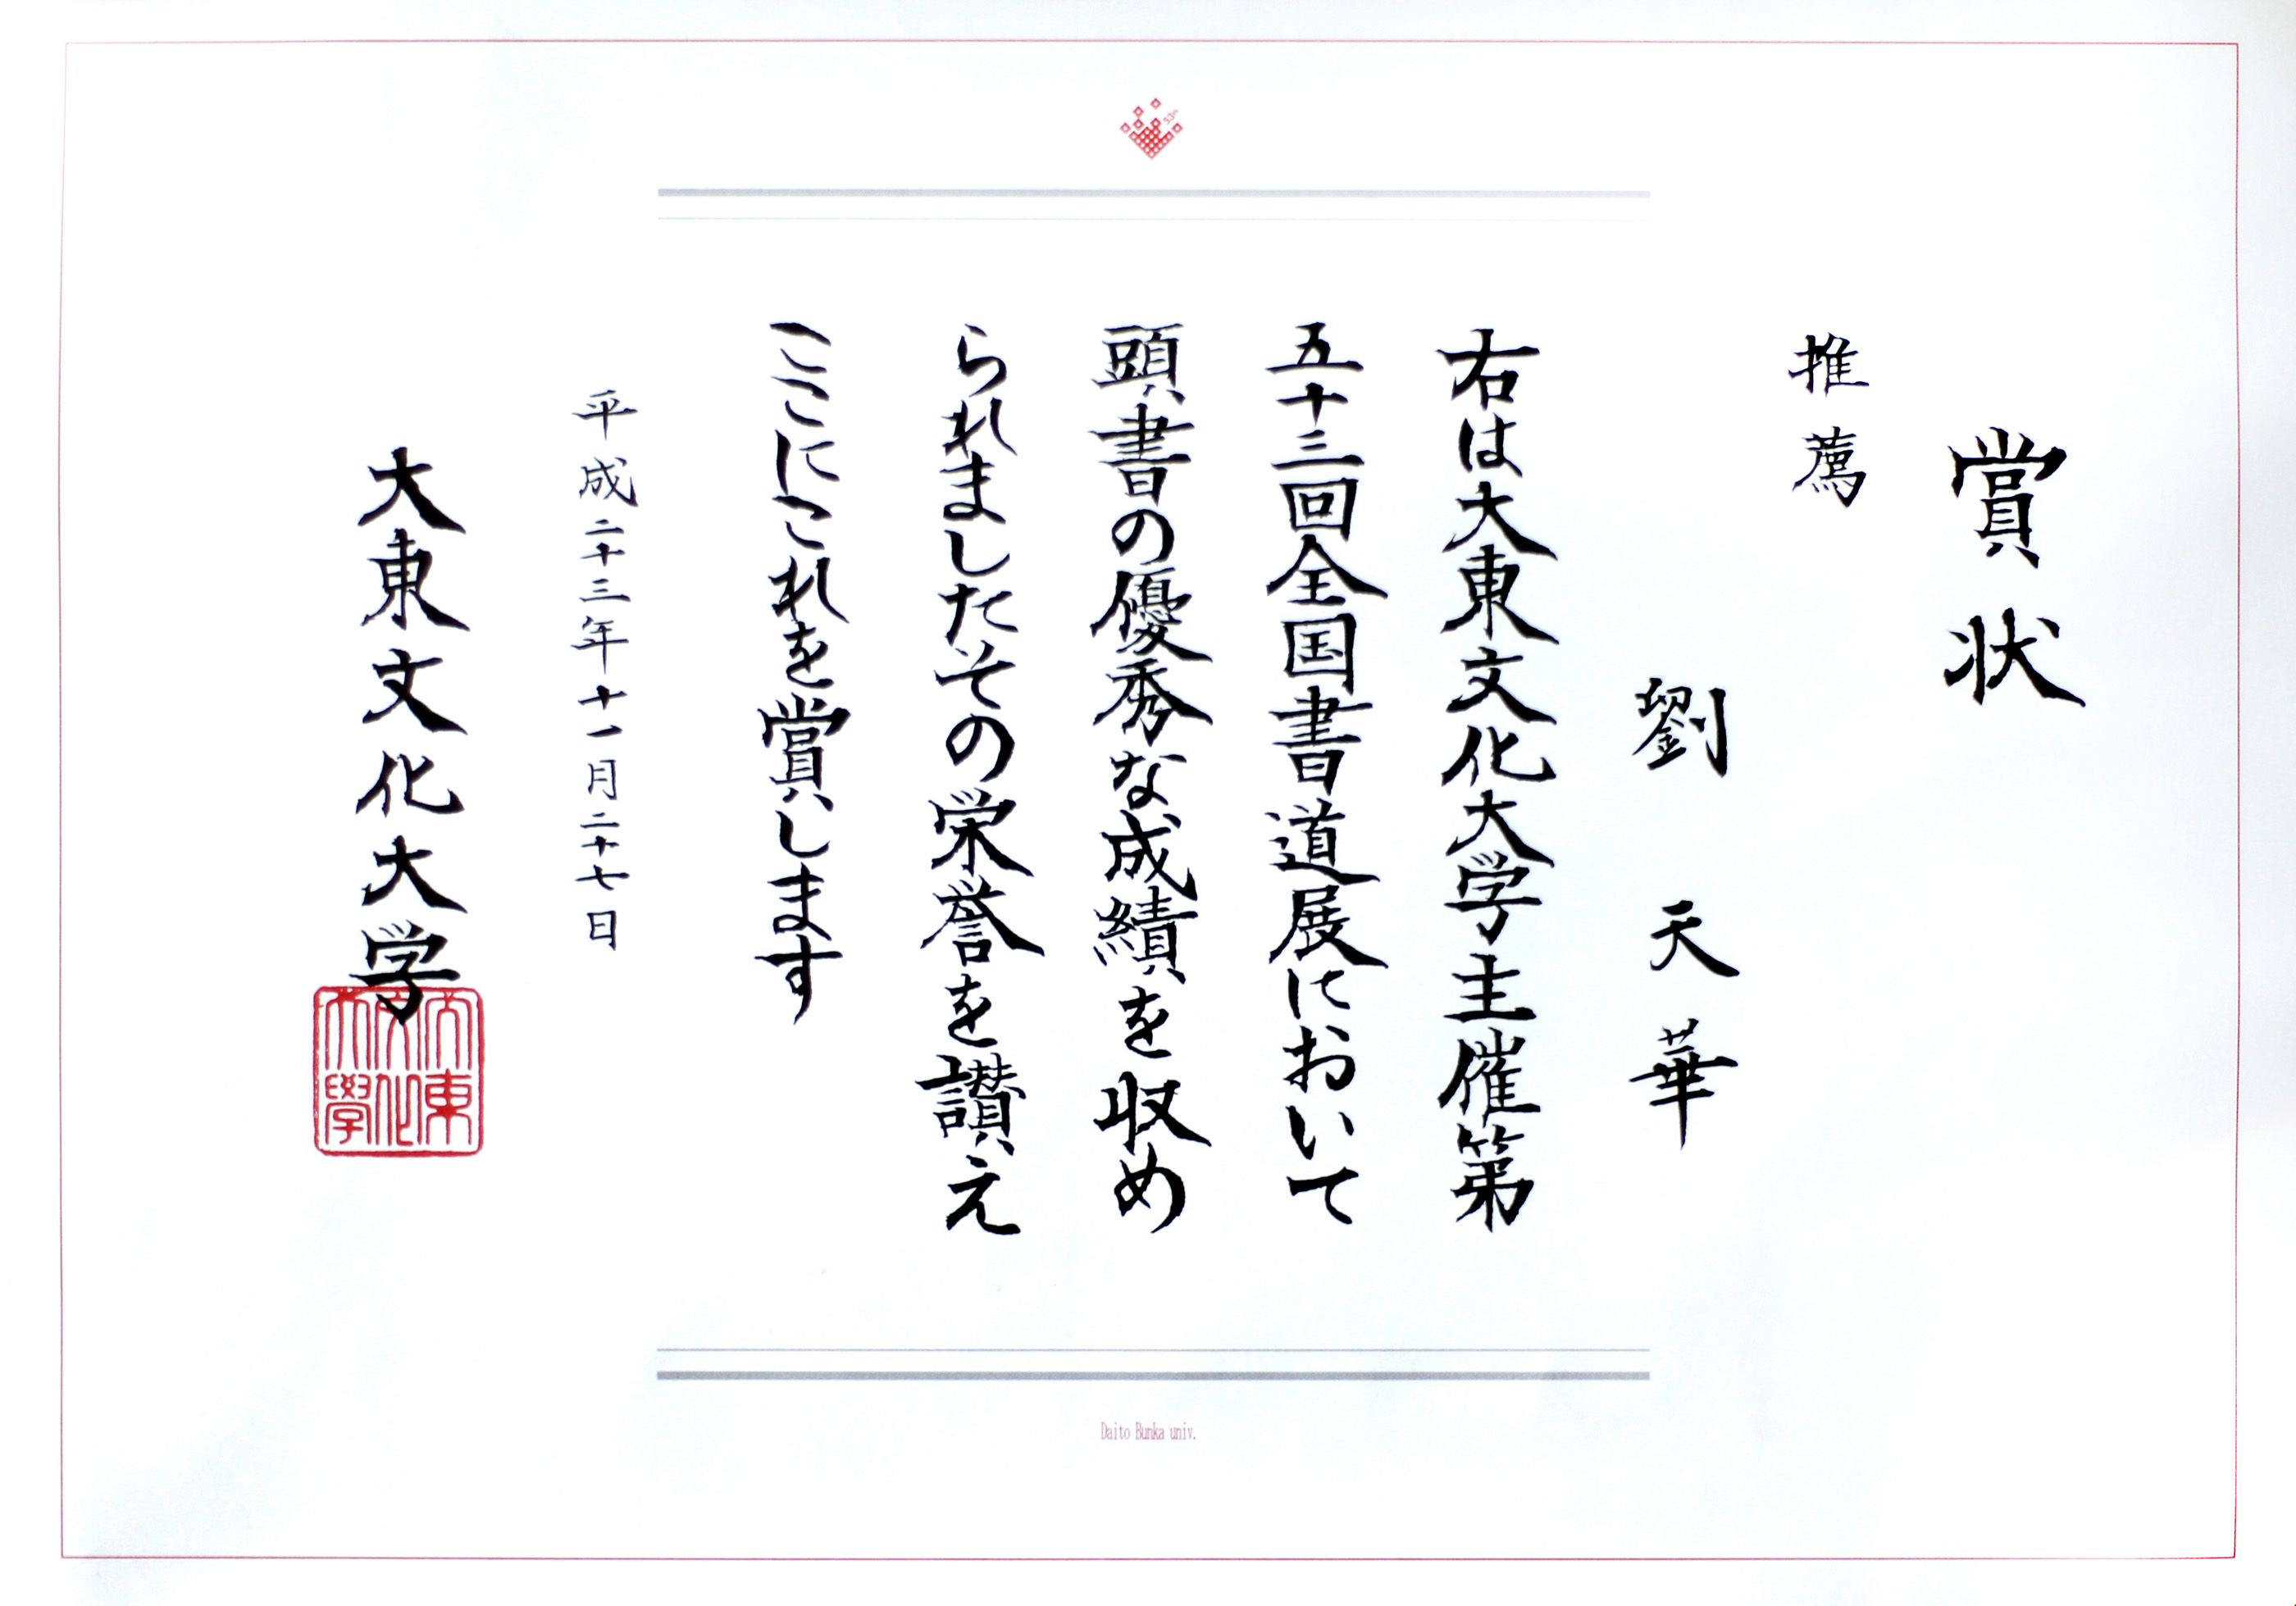 賞状
推薦
劉天華
右は大東文化大学主催第
五十三回全国書道展において
頭書の優秀な成績を収め
られましたその栄誉を讃え
ここにこれを賞します
平成二十三年十一月二十七日
大東文化大学
大東
文化
大學
53rd
Daito Bunka univ.